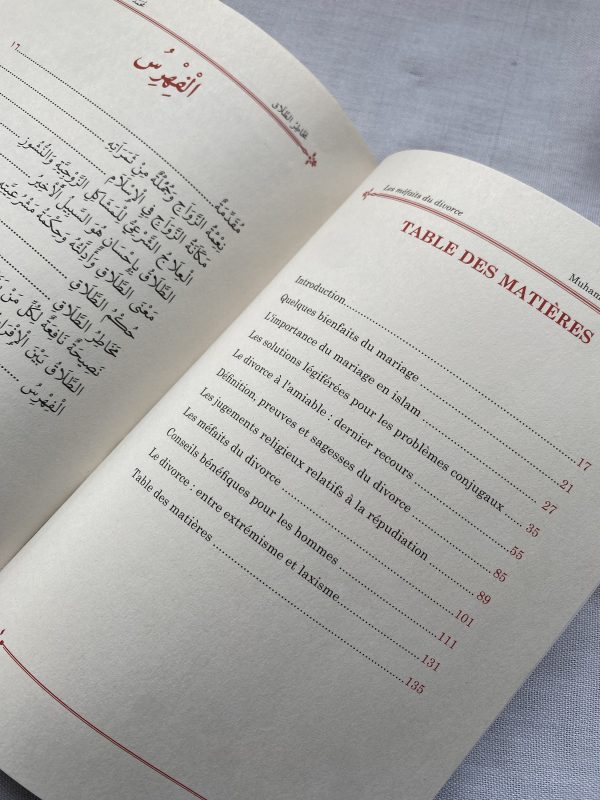 مخاطر الطلاق
الْفِهْرِسُ
مُقَدِّمَةٌ
١٦
نِعْمَةُ الزَّوَاجِ وَجُمْلَةٌ مِنْ ثَمَرَاتِهِ
مَكَانَةُ الزَّوَاجِ فِي الْإِسْلَامِ
الْعِلَاجُ الشَّرْعِيُّ لِلْمَشَاكِلِ الزَّوْجِيَّةِ وَالنُّشُوزِ
الطَّلَاقُ بِإِحْسَانٍ هُوَ السَّبِيلُ الْأَخِيرُ
مَعْنَى الطَّلَاقِ وَأَدِلَّتُهُ وَحِكْمَةُ
حُكْمُ الطَّلَاقِ
مَخَاطِرُ الطَّلَاقِ
نَصِيحَةٌ نَافِعَةٌ لِكُلِّ مَنْ
الطَّلَاقُ بَيْنَ
الْفِهْرِسُ
Les méfaits du divorce
Muham
TABLE DES MATIÈRES
Introduction 17
Quelques bienfaits du mariage 21
L'importance du mariage en islam 27
Les solutions légiférées pour les problèmes conjugaux 35
Le divorce à l'amiable : dernier recours 55
Définition, preuves et sagesses du divorce 85
Les jugements religieux relatifs à la répudiation 89
Les méfaits du divorce 101
Conseils bénéfiques pour les hommes 111
Le divorce : entre extrémisme et laxisme 131
Table des matières 135